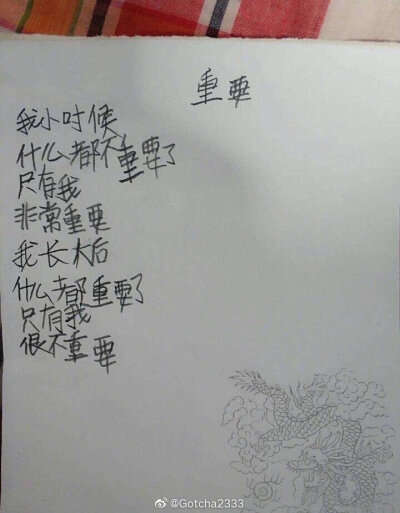 重要
我小时候
什么都不重要了
只有我
非常重要
我长大后
什么都重要了
只有我
很不重要
@Gotcha2333